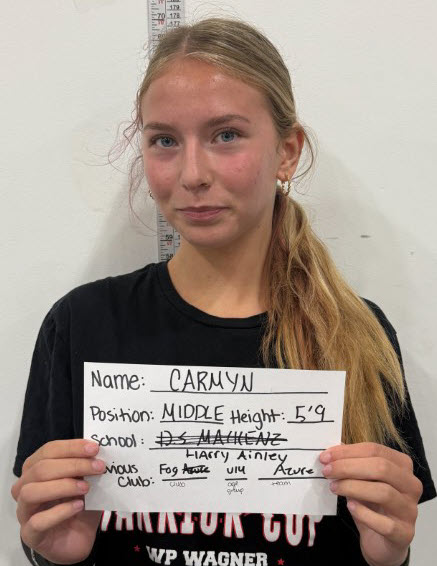 Name: CARMYN
Position: MIDDLE Height: 5'9
School: D.S MACKENZ
Harry Ainley
Club: Fog Azure U14 Azure
club age group team
WARRIOR CUP
WP WAGNER